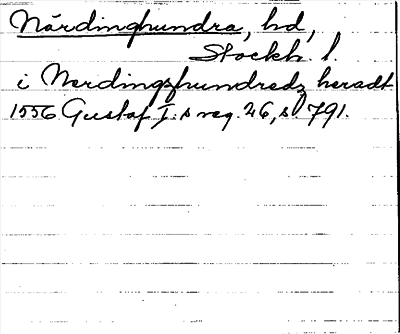 Närdinghundra, hd,
Stockh. l.
i Nerdingzhundredz heradt
1556 Gustaf I:s reg. 26, s. 791.